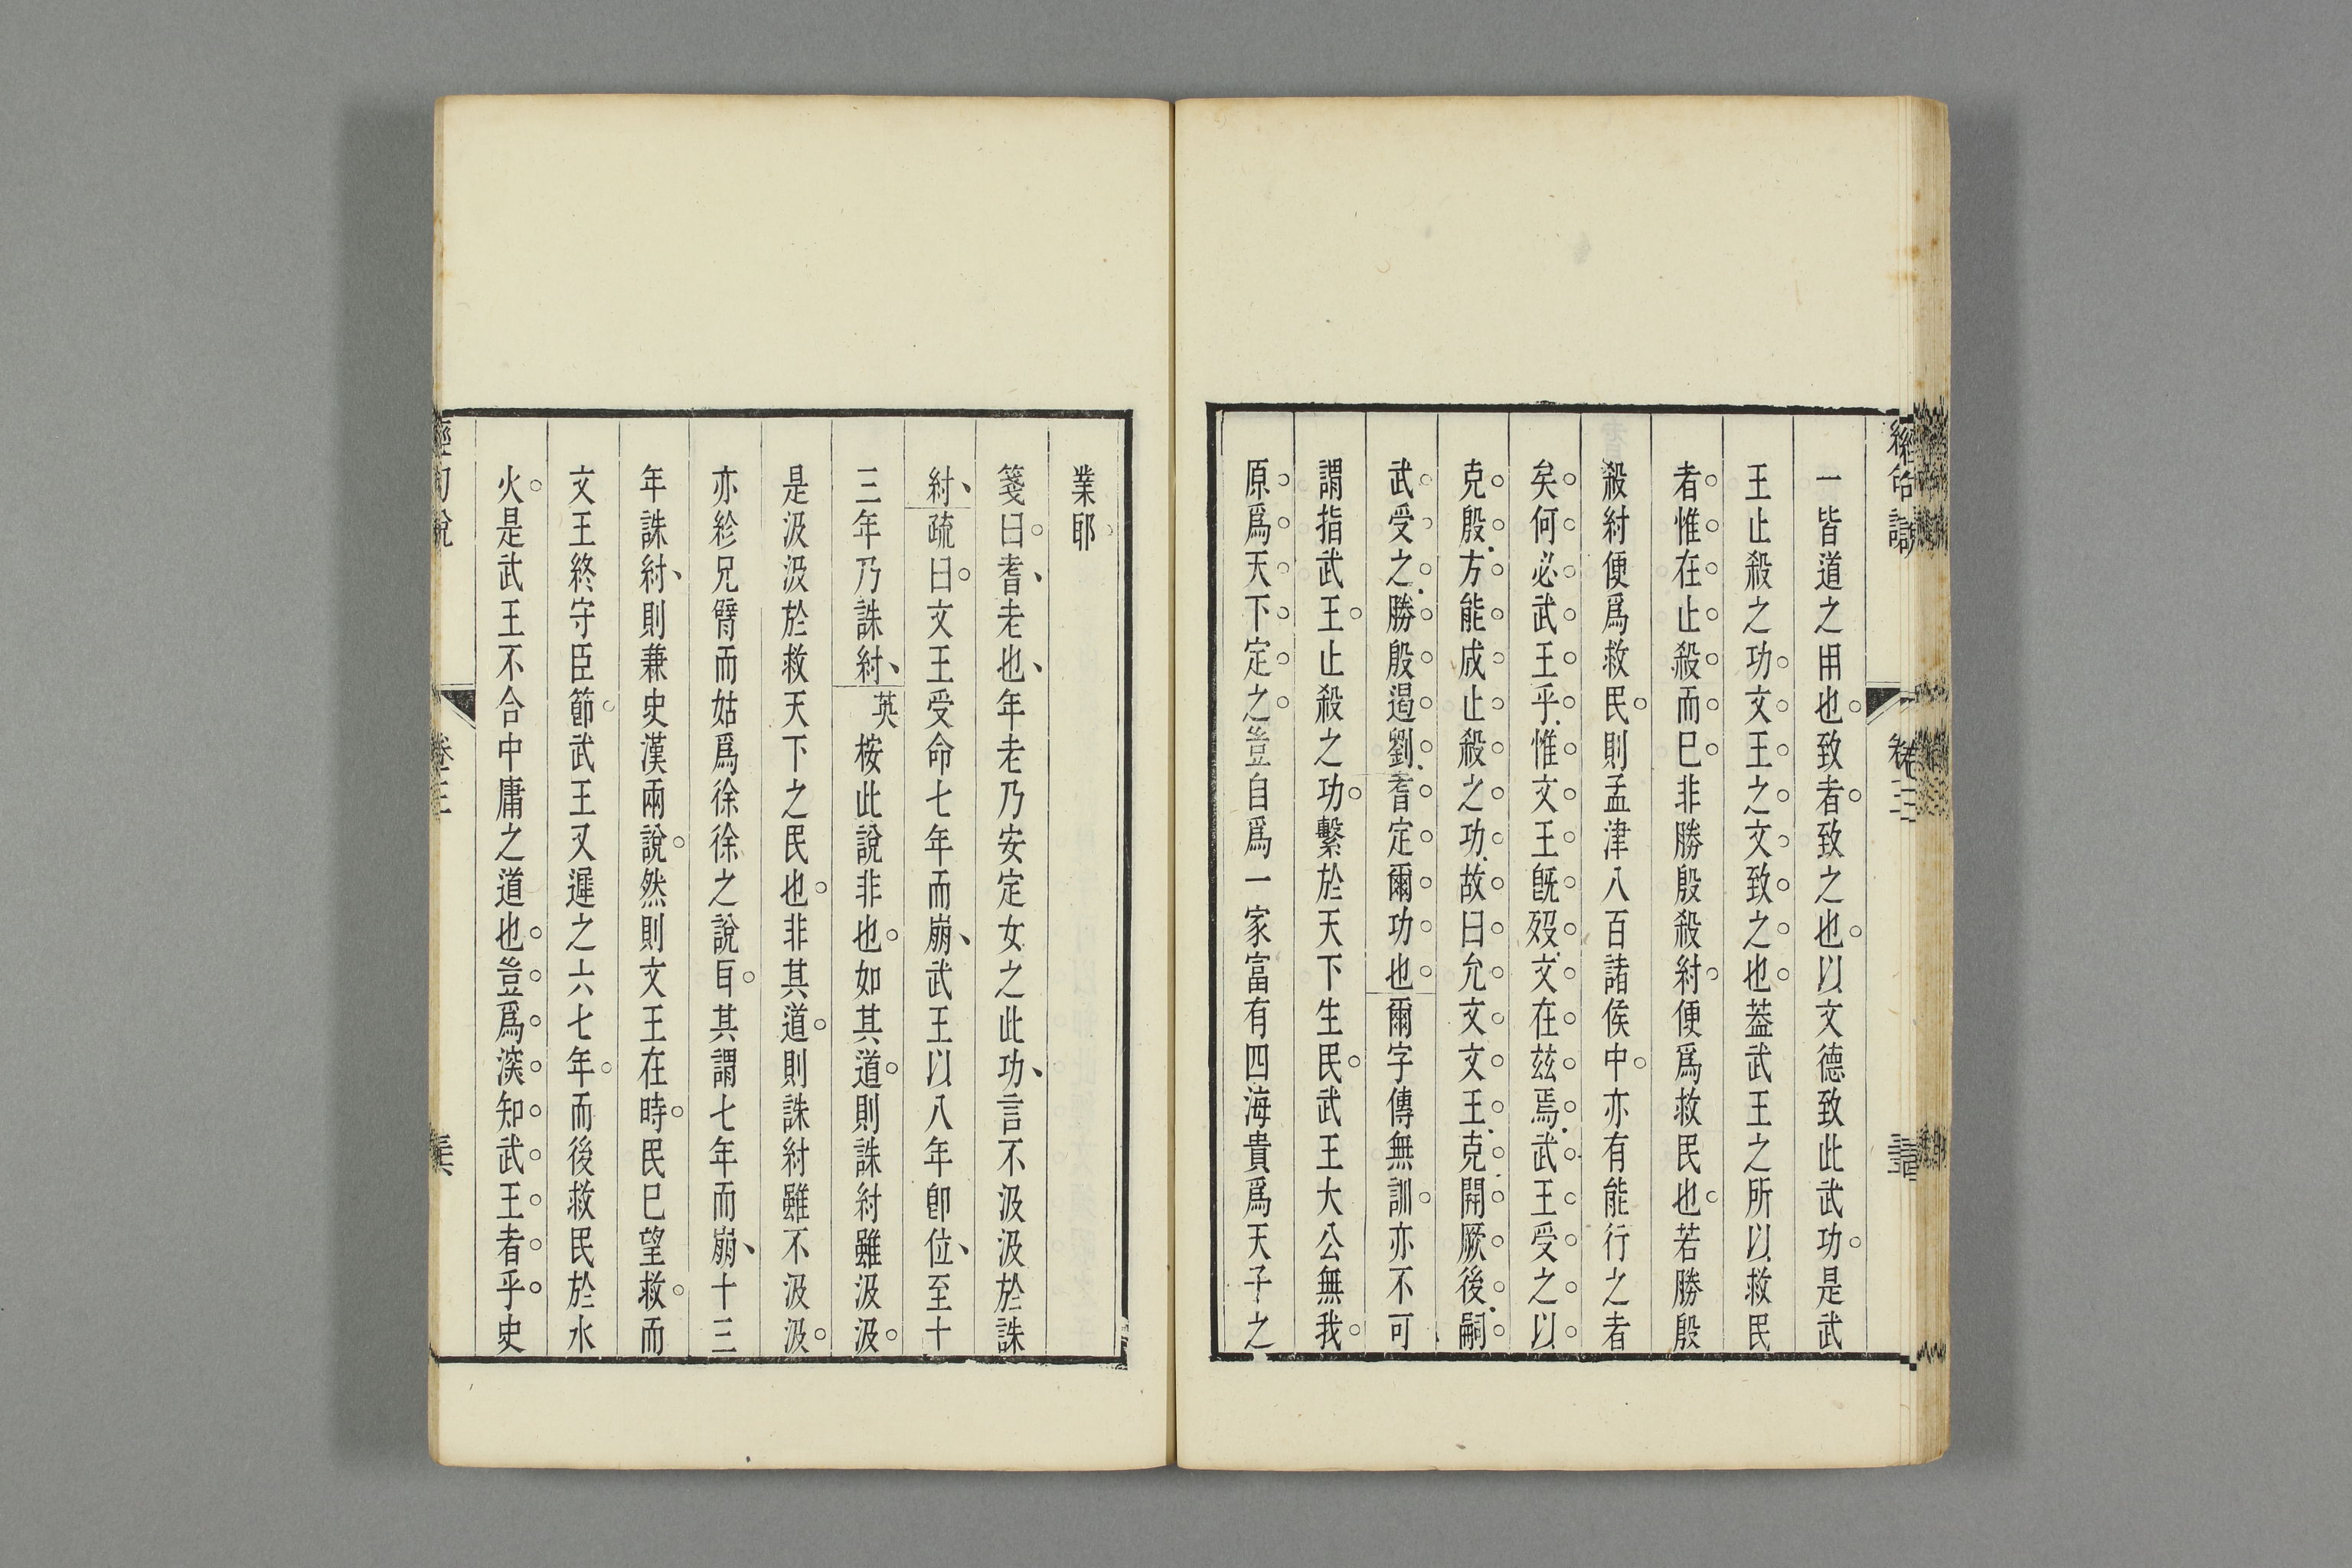 一皆道之用也致者致之也以文德致此武功是武
王止殺之功文王之文致之也葢武王之所以救民
者惟在止殺而巳非勝殷殺紂便爲救民也若勝殷
殺紂便爲救民則孟津八百諸侯中亦有能行之者
矣何必武王乎惟文王旣歿文在兹焉武王受之以
克殷方能成止殺之功故曰允文文王克開厥後嗣
武受之勝殷遏劉耆定爾功也爾字傳無訓亦不可
謂指武王止殺之功繫於天下生民武王大公無我
原爲天下定之豈自爲一家富有四海貴爲天子之
業耶
箋曰耆老也年老乃安定女之此功言不汲汲於誅
紂疏曰文王受命七年而崩武王以八年卽位至十
三年乃誅紂英桉此說非也如其道則誅紂雖汲汲
是汲汲於救天下之民也非其道則誅紂雖不汲汲
亦紾兄臂而姑爲徐徐之說㠯其謂七年而崩十三
年誅紂則兼史漢兩說然則文王在時民巳望救而
文王終守臣節武王又遲之六七年而後救民於水
火是武王不合中庸之道也豈爲深知武王者乎史
經句說
卷三